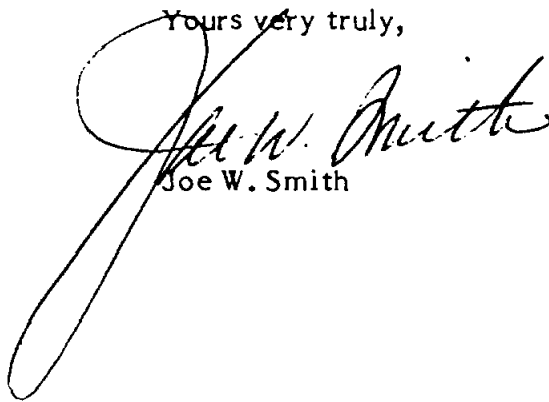 Yours very truly,
Joe W. Smith
Joe W. Smith